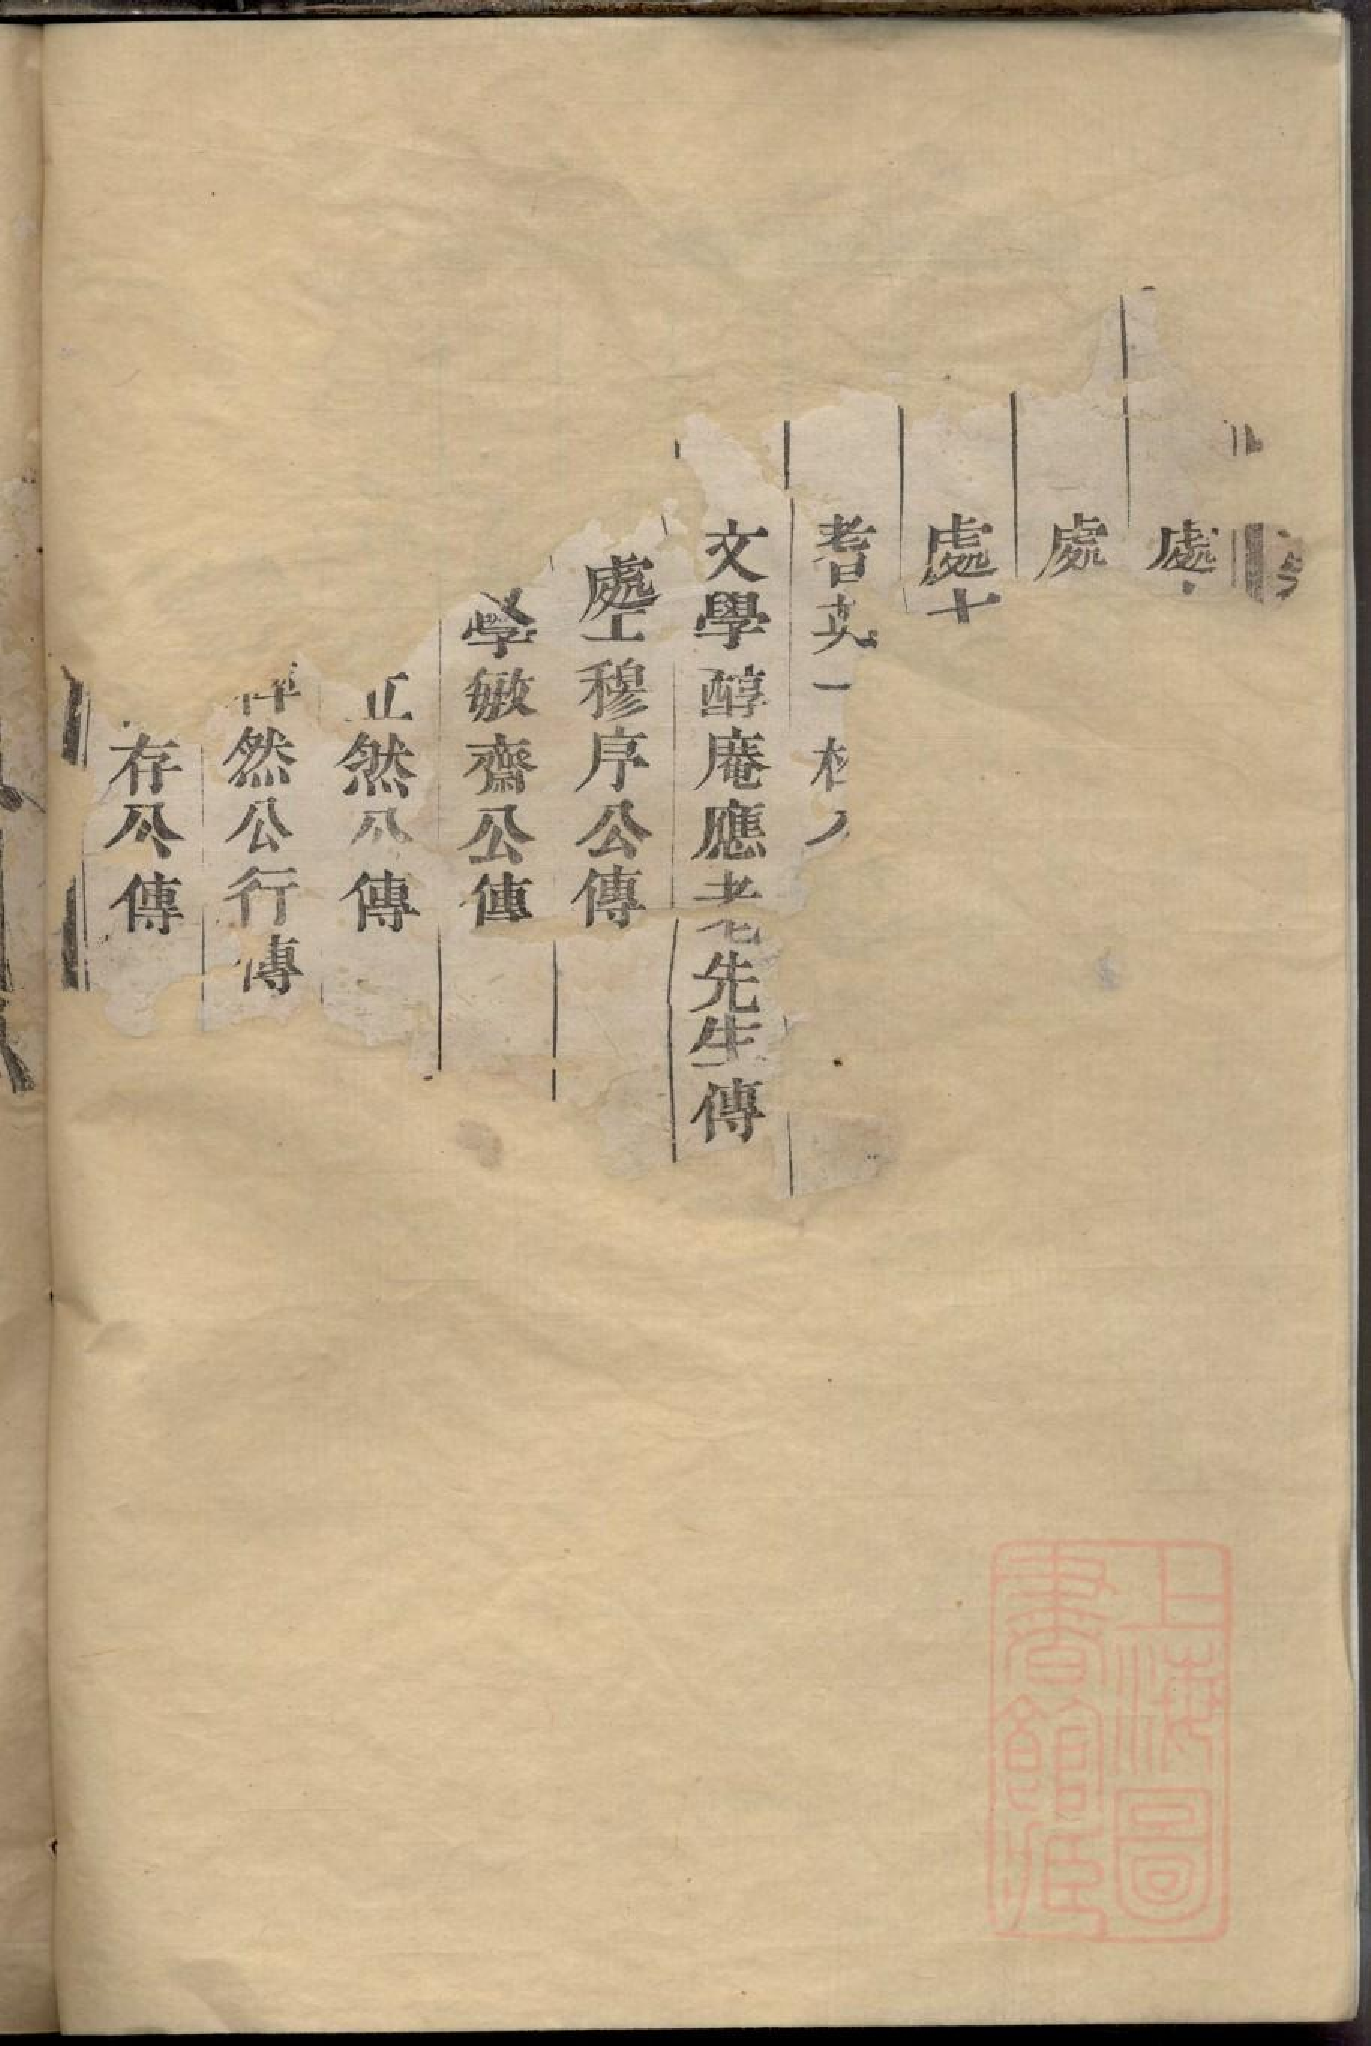 處
處
處士
耆英
文學醇庵應老先生傳
處士穆序公傳
學敏齋公傳
然公傳
然公行傳
存公傳
上海圖
書館藏